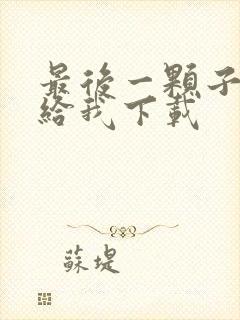 最後一顆子
給我下載
蘇堤